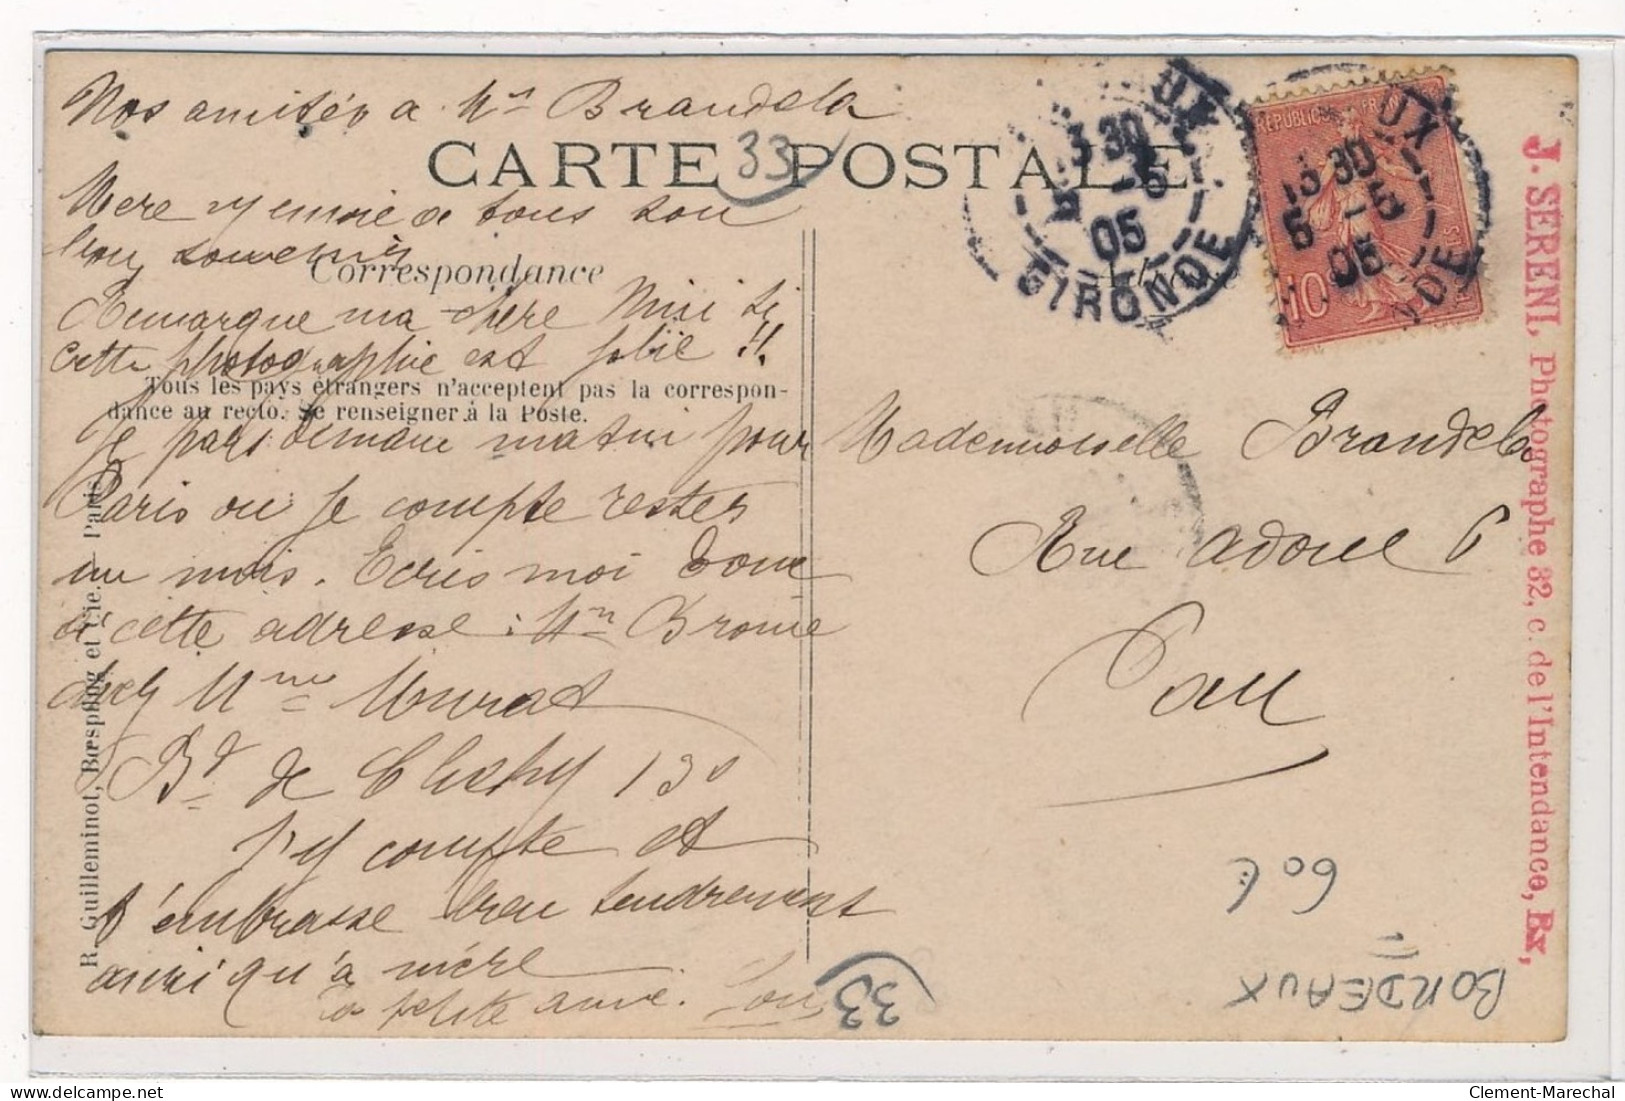 Nos amitiés a Mr Brandela
CARTE POSTALE
33
Mere t'y envoie a tous son
bon souvenir
Correspondance
Remarque ma chère Mimi si
cette photographie est jolie !!
Tous les pays étrangers n'acceptent pas la correspon-
dance au recto. Se renseigner à la Poste.
Je pars demain matin pour
Paris ou je compte rester
un mois. Ecris moi donc
à cette adresse : Mr
chez Mme Murat
Bd de Clichy 130
J'y compte et
t'embrasse bien tendrement
ainsi qu'à mère
Ta petite amie.
R. Guilleminot, Bœspflug et Cie. - Paris
13 30
5 -5
05
GIRONDE
RÉPUBLIQUE FRAN
10
UX
13 30
5 -5
05
NDE
Mademoiselle Brandela
Rue adoue 6
Pau
J. SERENI, Photographe 32, c. de l'Intendance, Bx,
60 €
BORDEAUX
33
Clement-Marechal